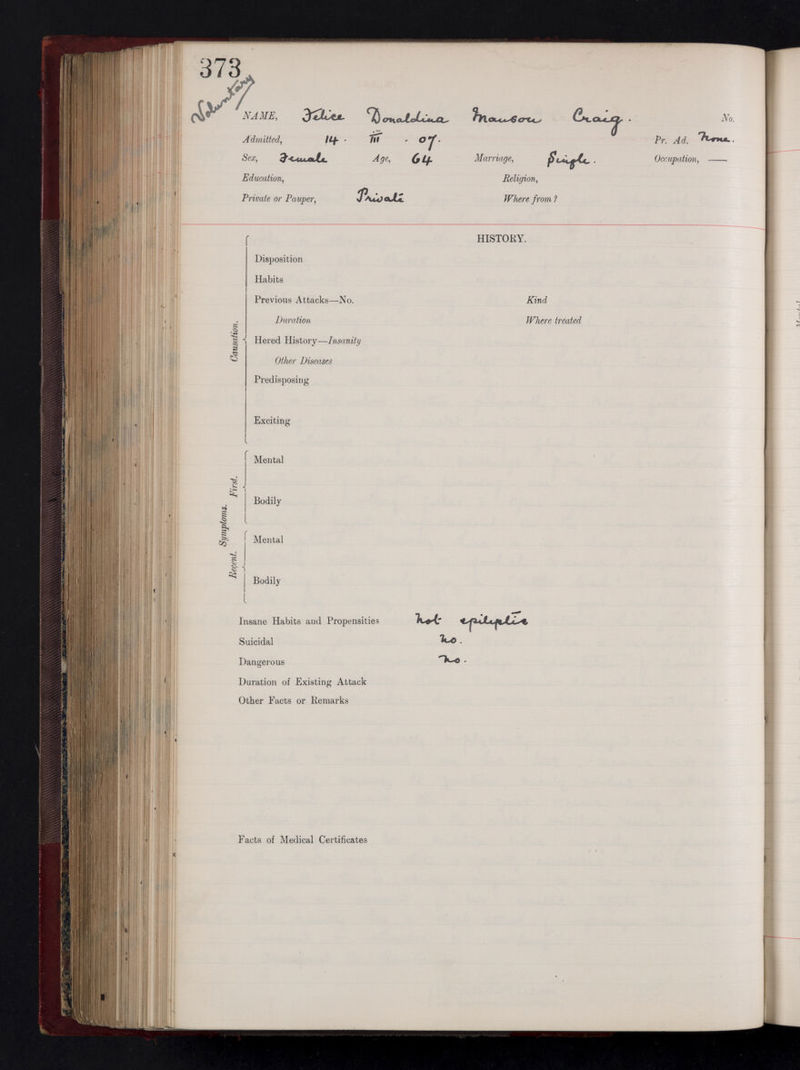 373
Voluntary
NAME, Felice Donaldina Mauson Craig. No.
Admitted, 14 - III - 07. Pr. Ad. None.
Sex, Female Age, 64 Marriage, Single. Occupation, —
Education, Religion,
Private or Pauper, Private Where from?
HISTORY.
Causation.
Disposition
Habits
Previous Attacks—No. Kind
Duration Where treated
Hered History—Insanity
Other Diseases
Predisposing
Exciting
Symptoms.
First.
Mental
Bodily
Recent.
Mental
Bodily
Insane Habits and Propensities not epileptic
Suicidal no.
Dangerous no.
Duration of Existing Attack
Other Facts or Remarks
Facts of Medical Certificates